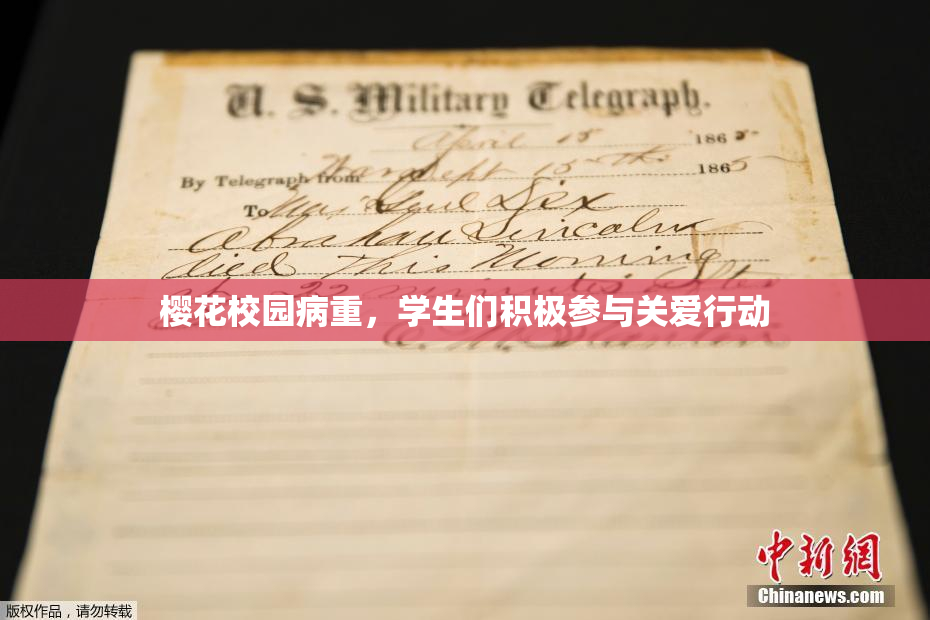 U. S. Military Telegraph.
April 15 1865.
By Telegraph from War Dept 15th 1865
To Maj Genl Dix
Abraham Lincoln
died This Morning
at 22 minutes after
樱花校园病重，学生们积极参与关爱行动
E. M. Stanton
中新网
Chinanews.com
版权作品，请勿转载